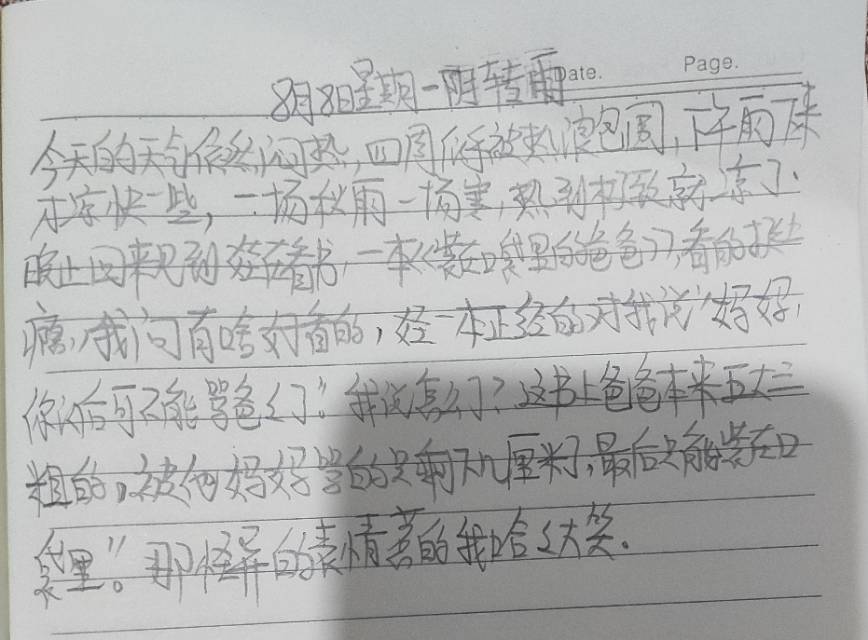 Date. Page.
8月8日星期一阴转雨
今天的天气依然闷热,四周似乎被热浪包围,下午雨下来
才凉快一些,一场秋雨一场寒,热到极致就凉了.
晚上回来见到在看书,一本《装在口袋里的爸爸》,看的挺
瘾,我问有啥好看的,一本正经的对我说"妈妈,
你以后可不能骂爸爸了".我说怎么了?这书上爸爸本来五大三
粗的,被他妈妈骂的只剩下几厘米了,最后只能装在口
袋里".那怪异的表情惹的我哈哈大笑.